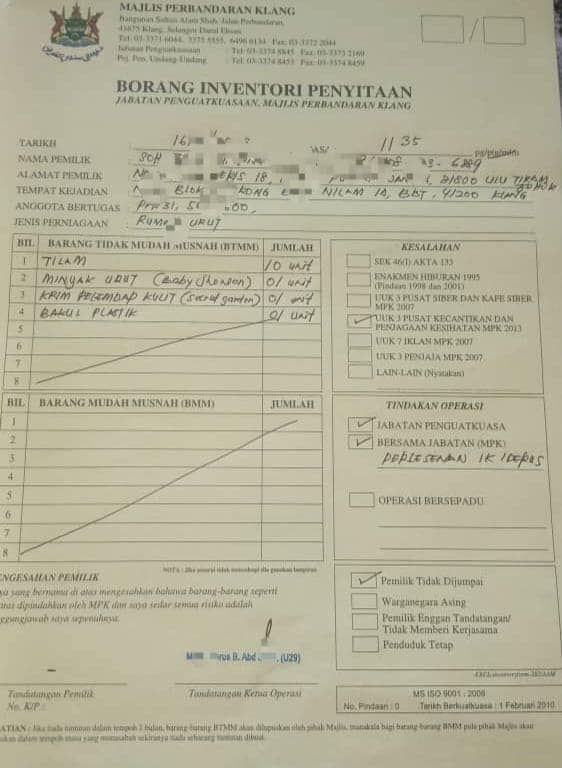 MAJLIS PERBANDARAN KLANG
Bangunan Sultan Alam Shah, Jalan Perbandaran,
41675 Klang, Selangor Darul Ehsan
Tel: 03-3371 6044, 3375 5555, 6496 6134 Fax: 03-3372 2044
Jabatan Penguatkuasaan : Tel: 03-3374 8845 Fax: 03-3373 2169
Pej. Pen. Undang-Undang : Tel: 03-3374 8453 Fax: 03-3374 8459
BORANG INVENTORI PENYITAAN
JABATAN PENGUATKUASAAN, MAJLIS PERBANDARAN KLANG
TARIKH 16, 1135
NAMA PEMILIK SOH
ALAMAT PEMILIK 18, 1, 31800 ULU
TEMPAT KEJADIAN BLOK NILAM 1A, BBT, 41200 KLANG
ANGGOTA BERTUGAS
JENIS PERNIAGAAN URUT
BIL BARANG TIDAK MUDAH MUSNAH (BTMM) JUMLAH
1 TILAM 10 unit
2 MINYAK URUT (Baby Jhonson) 01 unit
3 KRIM PELEMBAP KULIT (Secret garden) 01 unit
4 BAKUL PLASTIK 01 unit
5
6
7
8
KESALAHAN
SEK 46(I) AKTA 133
ENAKMEN HIBURAN 1995
(Pindaan 1998 dan 2001)
UUK 3 PUSAT SIBER DAN KAFE SIBER
MPK 2007
UUK 3 PUSAT KECANTIKAN DAN
PENJAGAAN KESIHATAN MPK 2013
UUK 7 IKLAN MPK 2007
UUK 3 PENJAJA MPK 2007
LAIN-LAIN (Nyatakan)
BIL BARANG MUDAH MUSNAH (BMM) JUMLAH
1
2
3
4
5
6
7
8
TINDAKAN OPERASI
JABATAN PENGUATKUASA
BERSAMA JABATAN (MPK)
PERLESENAN
OPERASI BERSEPADU
NOTA : Jika senarai tidak mencukupi sila gunakan lampiran
Pemilik Tidak Dijumpai
Warganegara Asing
Pemilik Enggan Tandatangan/
Tidak Memberi Kerjasama
Penduduk Tetap
ENGESAHAN PEMILIK
ya yang bernama di atas mengesahkan bahawa barang-barang seperti
atas dipindahkan oleh MPK dan saya sedar semua risiko adalah
ggungjawab saya sepenuhnya.
B. Abd (U29)
Tandatangan Pemilik
No. K/P :
Tandatangan Ketua Operasi
MS ISO 9001 : 2008
No. Pindaan : 0 Tarikh Berkuatkuasa : 1 Februari 2010
ATIAN : Jika tiada tuntutan dalam tempoh 1 bulan, barang-barang BTMM akan dilupuskan oleh pihak Majlis, manakala bagi barang-barang BMM pula pihak Majlis akan
dalam tempoh masa yang munasabah sekiranya tiada sebarang tuntutan dibuat.